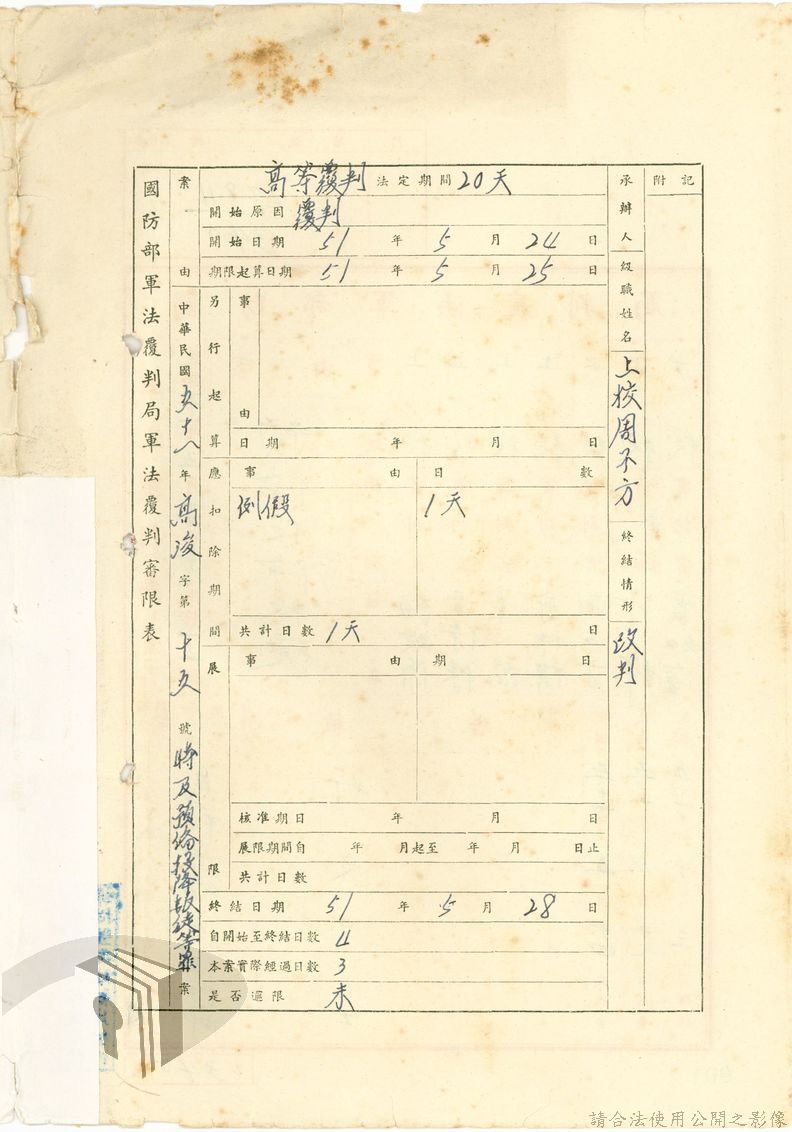 國防部軍法覆判局軍法覆判審限表
案由
中華民國五十一年高浚字第十五號
等罪案
高等覆判 法定期間 20天
開始原因 覆判
開始日期 51年5月24日
期限起算日期 51年5月25日
另行起算
事由
日期 年 月 日
應扣除期間
事由 日數
例假 1天
共計日數 1天 日
展限
事由 期日
核准期日 年 月 日
展限期間自 年 月起至 年 月 日止
共計日數
終結日期 51年5月28日
自開始至終結日數 4
本案實際經過日數 3
是否逾限 未
承辦人級職姓名 上校周不方
終結情形 改判
附記
請合法使用公開之影像